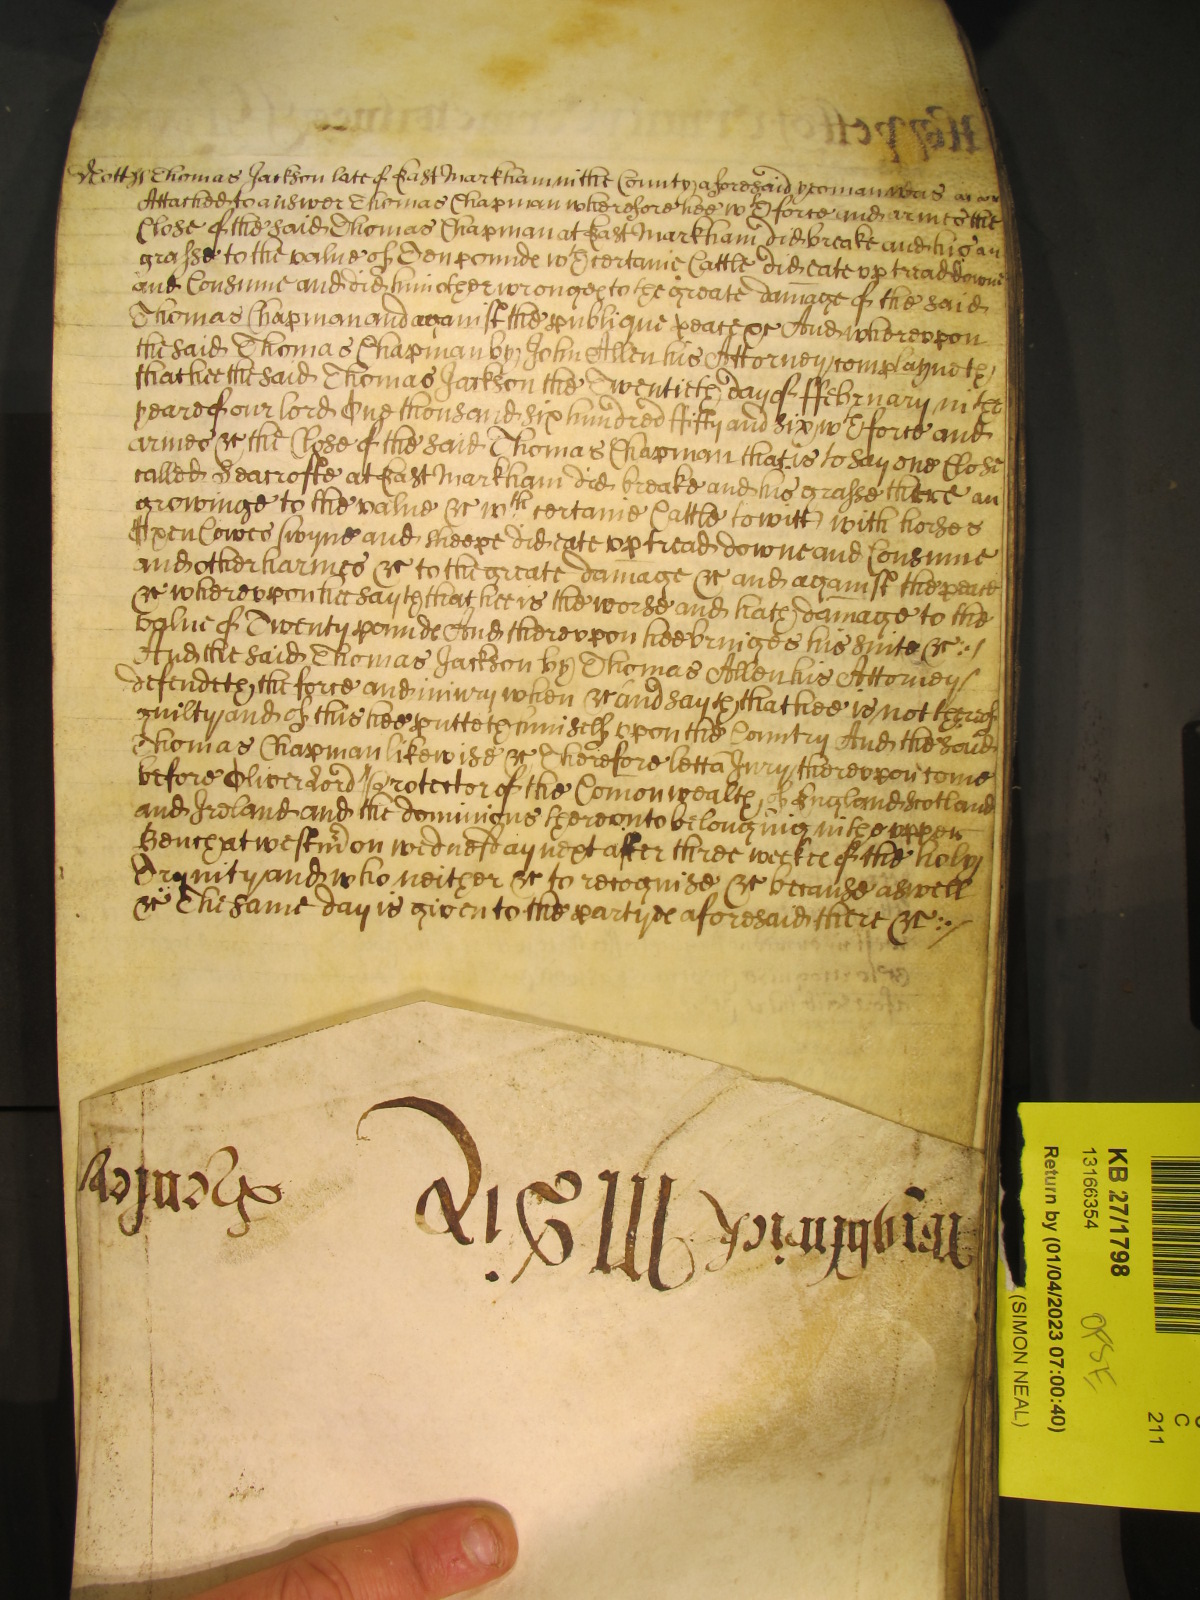 Nott ss Thomas Jackson late of East Markham in the County aforesaid yeoman was
Attached to answer Thomas Chapman wherefore hee wth force and armes the
Close of the said Thomas Chapman at East Markham did breake and his
grasse to the value of Ten pounde wth certaine Cattle did eate up tread downe
and Consume and did him other wronges to the greate damage of the said
Thomas Chapman and against the publique peace &c And whereupon
the said Thomas Chapman by John Allen his Attorney complayneth
that hee the said Thomas Jackson the Twentieth day of ffebruary in the
yeare of our lord One thousand six hundred ffifty and six wth force and
armes &c the Close of the said Thomas Chapman that is to say one Close
called Seacrofte at East Markham did breake and his grasse there an
growinge to the value &c wth certaine Cattle to witt with horses
Oxen Cowes swyne and sheepe did eate up tread downe and Consume
and other harmes &c to the greate damage &c and against the peace
&c whereupon hee sayth that hee is the worse and hath damage to the
value of Twenty pounde And thereupon hee bringes his suite &c :/
And the said Thomas Jackson by Thomas Allen his Attorney
defendeth the force and iniury when &c and sayth that hee is not thereof
guilty and of this hee putteth himself upon the Country And the said
Thomas Chapman likewise &c Therefore lett a Jury thereupon come
before Oliver Lord Protector of the Comonwealth of England Scotland
and Ireland and the dominions thereunto belonging in the upper
Bench at Westmr on wednesday next after three weeke of the holy
Trynity and who neither &c to recognise &c because aswell
&c The same day is given to the partyes aforesaid there &c :/
Wightwick M Six Henley
KB 27/1798
13166354
Return by (01/04/2023 07:00:40)
(SIMON NEAL)
C
211